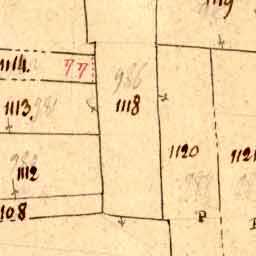 1119
1114.
77
986
1113.
981
1118
1120
1121
1112
1108
P